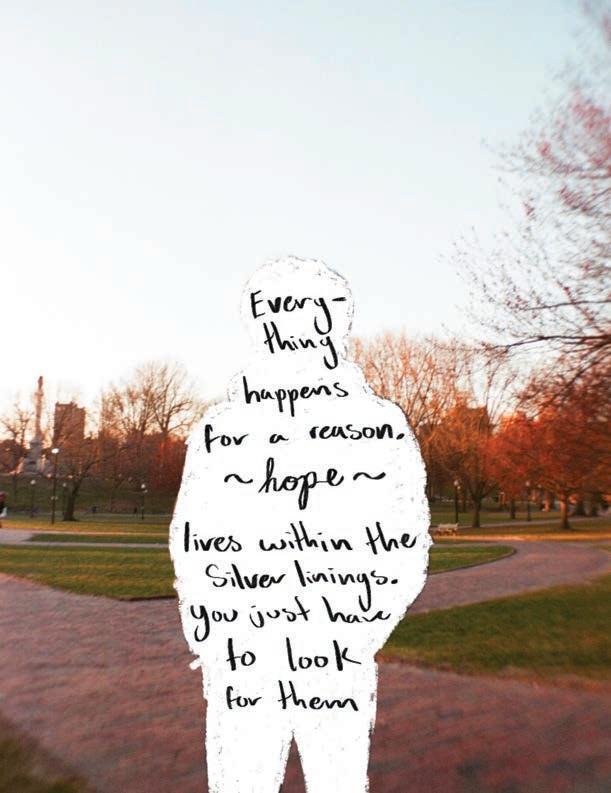 Every-
thing
happens
for a reason.
~hope~
lives within the
Silver linings.
you just have
to look
for them